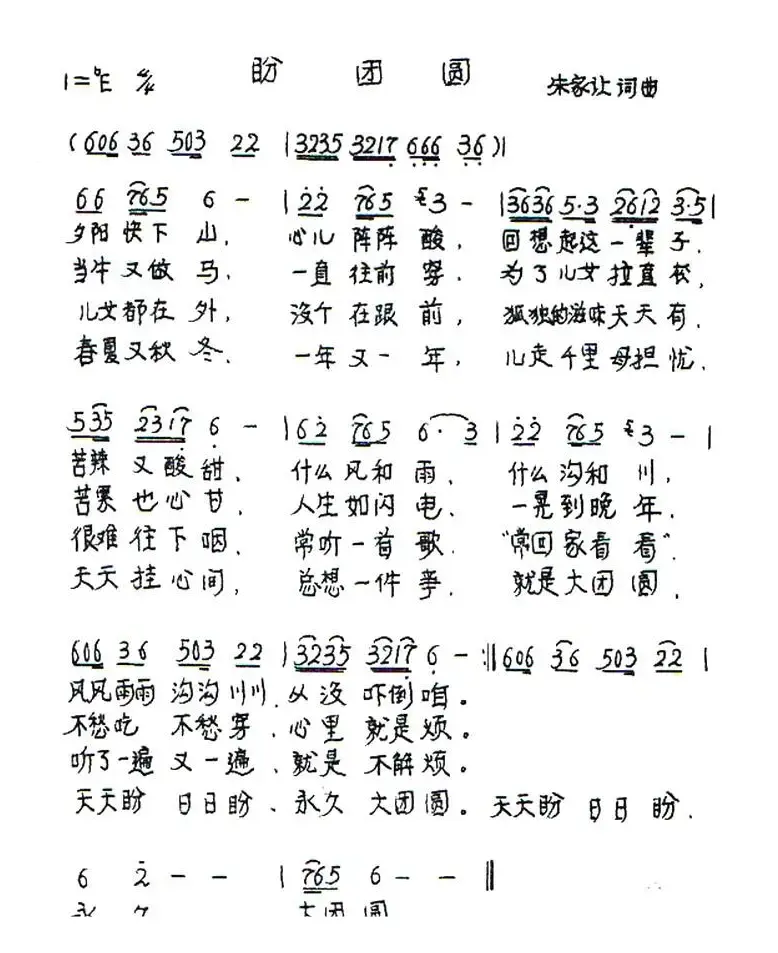 盼 团 圆
1=ᵇE 4/4 朱家让 词曲
(606 36 503 22 | 3235 3217 666 36)|
66 765 6 - | 22 765 3 - |3636 5·3 2612 3·5|
夕阳 快下 山， 心儿 阵阵 酸， 回想起这一辈子，
当牛又做马， 一直往前 穿， 为了儿女拉直套，
儿女都在外， 没个在跟前， 孤独的滋味天天有，
春夏又秋冬， 一年又一年， 儿走千里母担忧，
535 2317 6 - |62 765 6· 3 | 22 765 3 - |
苦辣 又酸甜， 什么风和雨， 什么沟和川，
苦累也心甘， 人生如闪电， 一晃到晚年，
很难往下咽， 常听一首歌， “常回家看看”
天天挂心间， 总想一件事， 就是大团圆，
606 36 503 22 |3235 3217 6 - :||606 36 503 22 |
风风雨雨 沟沟川川，从没 吓倒咱。
不愁吃 不愁穿，心里 就是烦。
听了一遍又一遍，就是 不解烦。
天天盼 日日盼、永久 大团圆。天天盼 日日盼，
6 2 - - | 765 6 - - ||
永久 大团圆